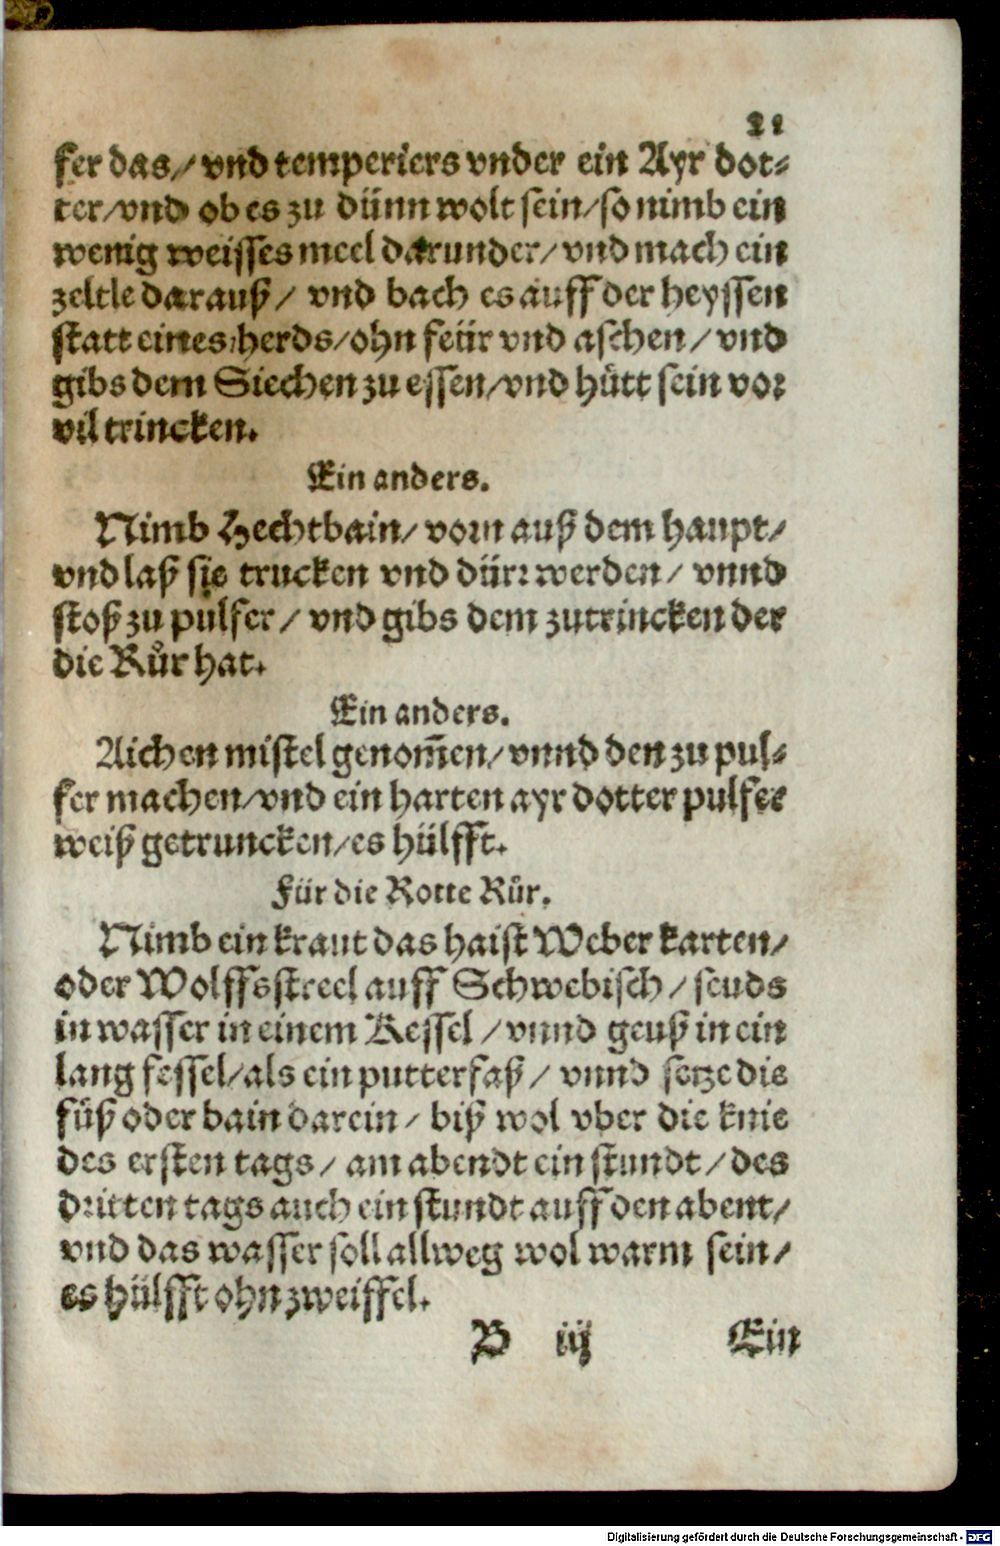 21
fer das / vnd temperiers vnder ein Ayr dot-
ter / vnd ob es zu dünn wolt sein / so nimb ein
wenig weisses meel darunder / vnd mach ein
zeltle darauß / vnd bach es auff der heyssen
statt eines herds / ohn feür vnd aschen / vnd
gibs dem Siechen zu essen / vnd hütt sein vor
vil trincken.
Ein anders.
Nimb Hechtbain / vorn auß dem haupt /
vnd laß sie trucken vnd dürr werden / vnnd
stoß zů pulfer / vnd gibs dem zutrincken der
die Růr hat.
Ein anders.
Aichen mistel genom̃en / vnnd den zu pul-
fer machen / vnd ein harten ayr dotter pulfer
weiß getruncken / es hülfft.
Für die Rotte Růr.
Nimb ein kraut das haist Weber karten /
oder Wolffsstreel auff Schwebisch / seuds
in wasser in einem Kessel / vnnd geuß in ein
lang fessel / als ein putterfaß / vnnd setze die
füß oder bain darein / biß wol vber die knie
des ersten tags / am abendt ein stundt / des
dritten tags auch ein stundt auff den abent /
vnd das wasser soll allweg wol warm sein /
es hülfft ohn zweiffel.
B iij Ein
Digitalisierung gefördert durch die Deutsche Forschungsgemeinschaft - DFG